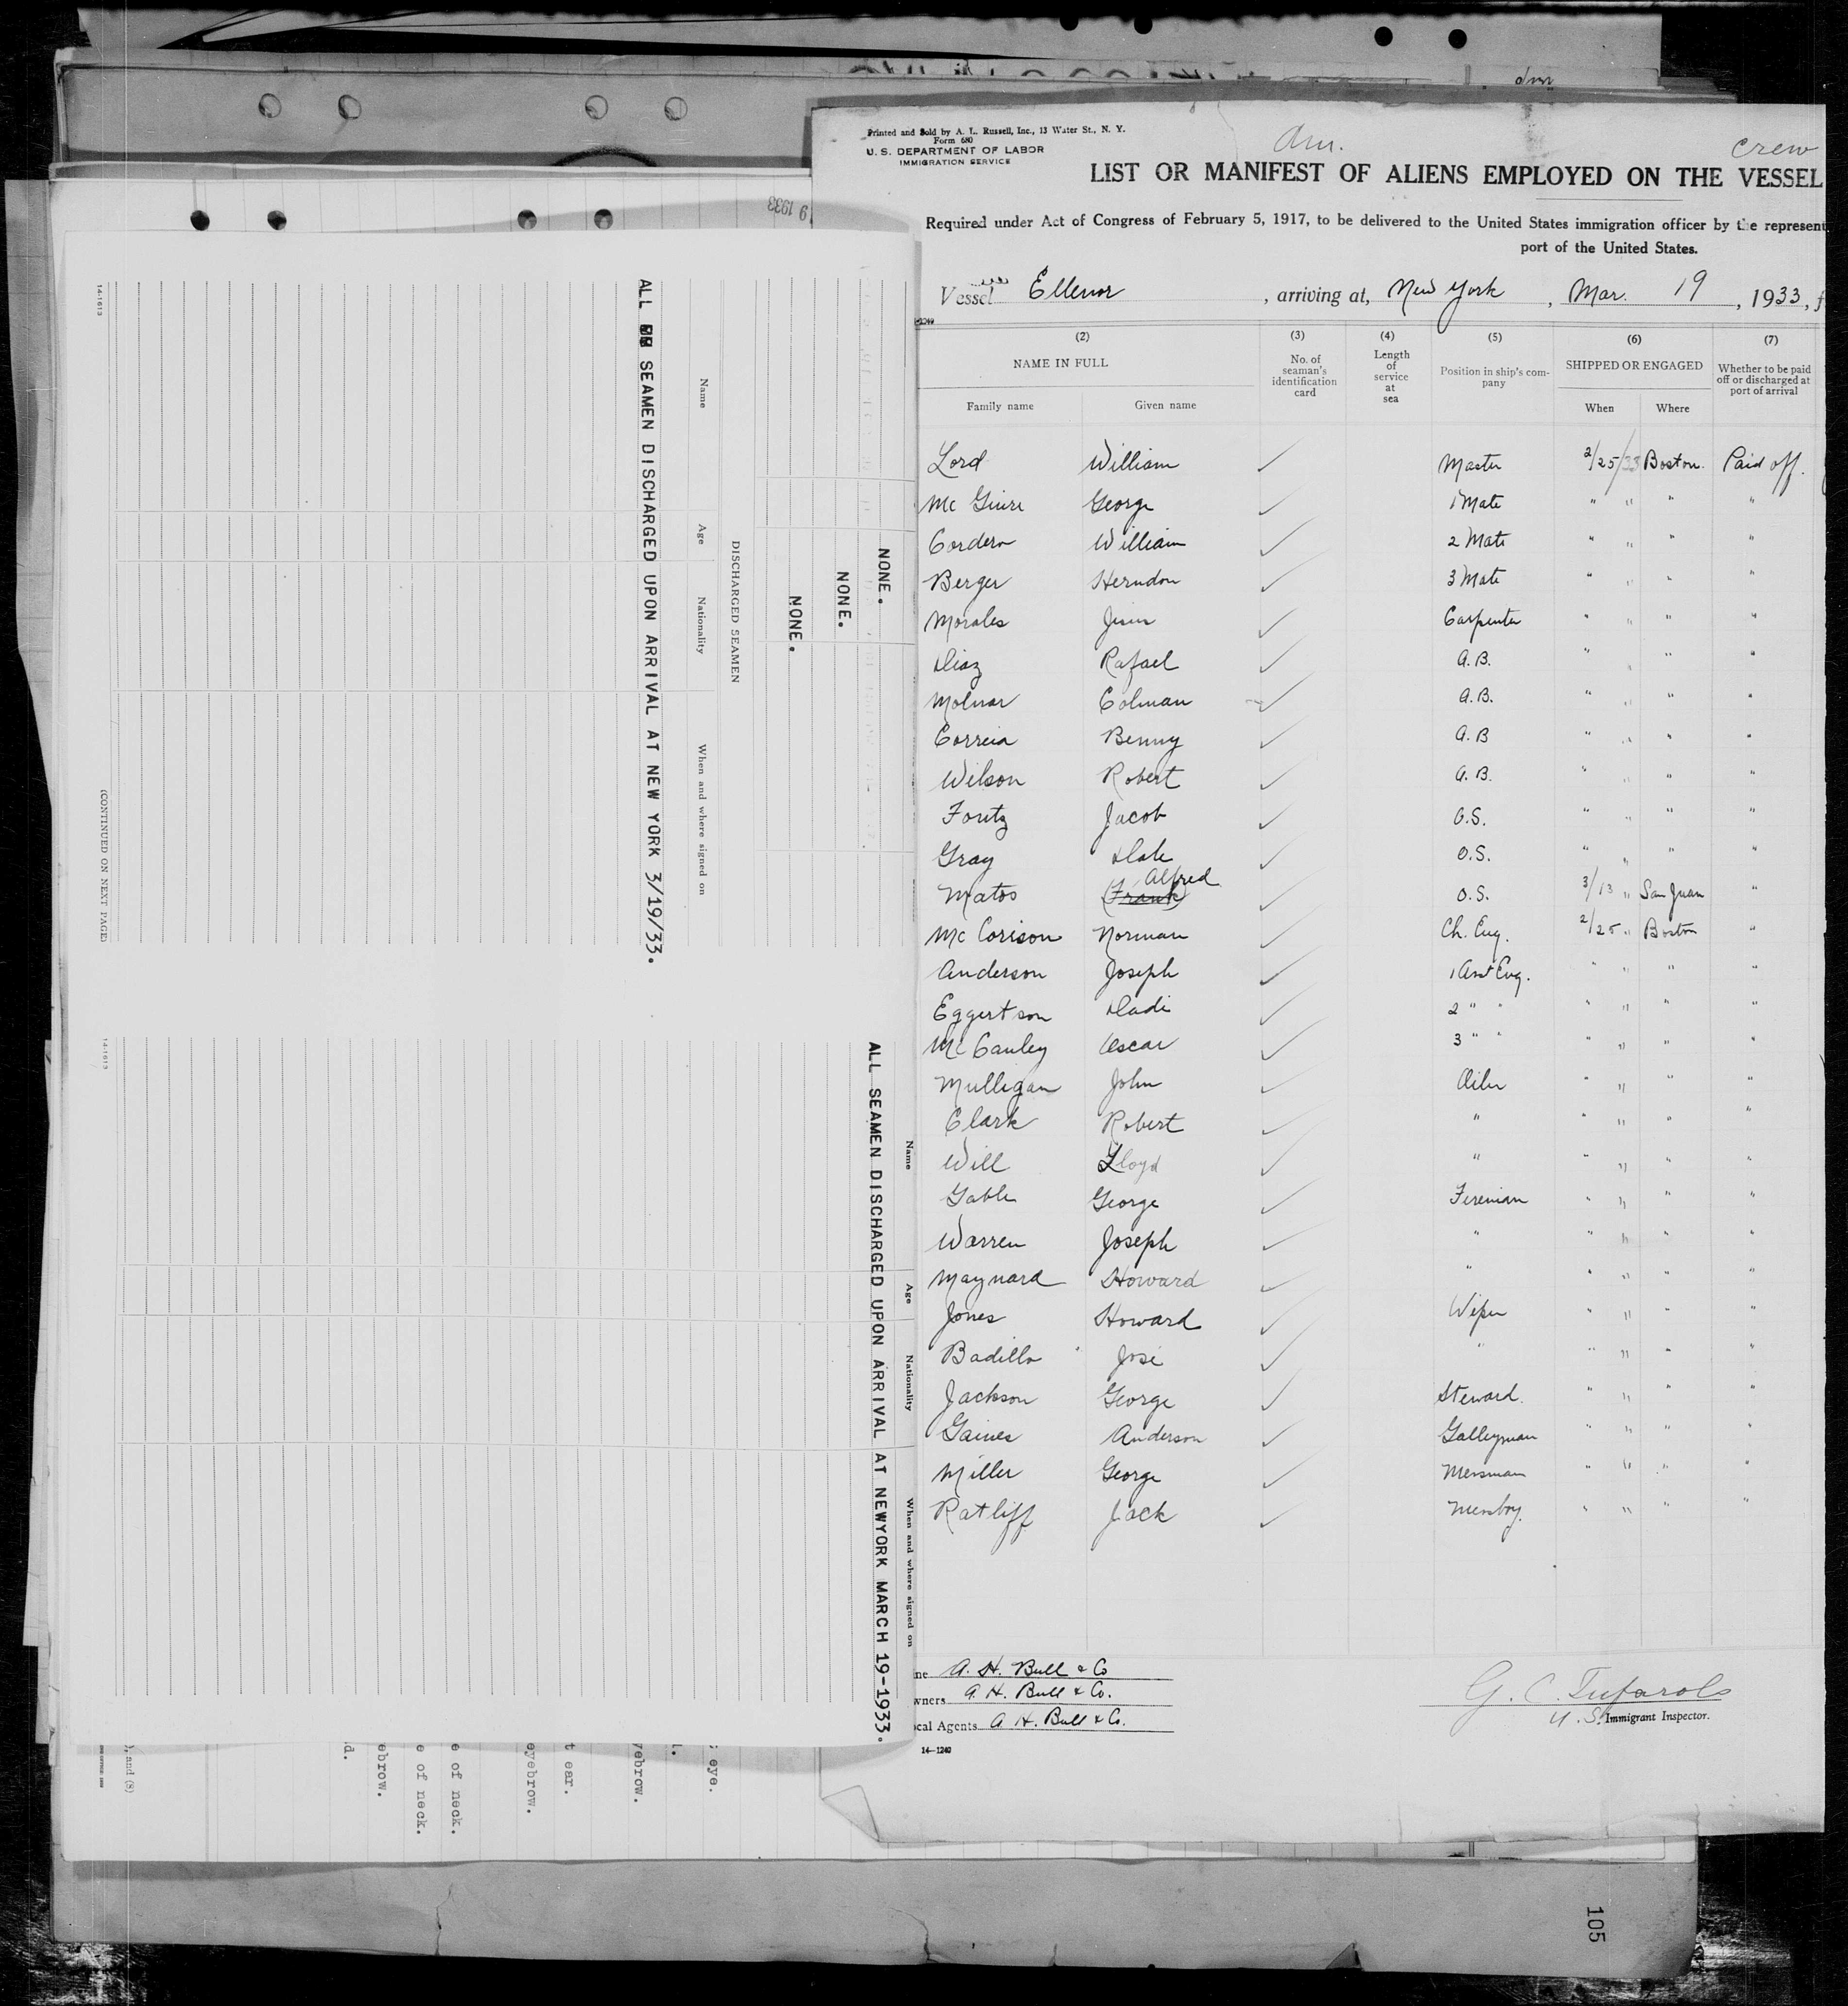 Printed and Sold by A. L. Russell, Inc., 13 Water St., N. Y.
Form 680
U. S. DEPARTMENT OF LABOR
IMMIGRATION SERVICE
Am.
crew
LIST OR MANIFEST OF ALIENS EMPLOYED ON THE VESSEL
Required under Act of Congress of February 5, 1917, to be delivered to the United States immigration officer by the represent
port of the United States.
Vessel Ellenor, arriving at, New York, Mar. 19, 1933, f
(2) (3) (4) (5) (6) (7)
NAME IN FULL No. of seaman's identification card Length of service at sea Position in ship's company SHIPPED OR ENGAGED Whether to be paid off or discharged at port of arrival
Family name Given name When Where
Lord William Master 2/25/33 Boston. Paid off.
Mc Guire George 1 Mate " " " "
Cordero William 2 Mate " " " "
Berger Herndon 3 Mate " " " "
Morales Jesus Carpenter " " " "
Diaz Rafael A.B. " " " "
Molnar Colman A.B. " " " "
Correia Benny A.B " " " "
Wilson Robert A.B. " " " "
Foutz Jacob O.S. " " " "
Gray Dale O.S. " " " "
Matos (Frank) Alfred O.S. 3/13 " San Juan "
Mc Corison Norman Ch. Eng. 2/25 " Boston "
Anderson Joseph 1 Asst Eng. " " " "
Eggertson Dadi 2 " " " " " "
Mc Cauley Oscar 3 " " " " " "
Mulligan John Oiler " " " "
Clark Robert " " " " "
Will Lloyd " " " " "
Gable George Fireman " " " "
Warren Joseph " " " " "
Maynard Howard " " " " "
Jones Howard Wiper " " " "
Badillo José " " " " "
Jackson George Steward. " " " "
Gaines Anderson Galleyman " " " "
Miller George Messman " " " "
Ratliff Jack Messboy. " " " "
ne A. H. Bull & Co
wners A. H. Bull & Co.
ocal Agents A. H. Bull & Co.
14—1240
G. C. Tufarolo
U. S. Immigrant Inspector.
9 1933
NONE.
NONE.
NONE.
DISCHARGED SEAMEN
Name Age Nationality When and where signed on
ALL SEAMEN DISCHARGED UPON ARRIVAL AT NEW YORK 3/19/33.
14-1613
(CONTINUED ON NEXT PAGE)
Name Age Nationality When and where signed on
ALL SEAMEN DISCHARGED UPON ARRIVAL AT NEWYORK MARCH 19-1933.
14-1613
eye.
yebrow.
t ear.
eyebrow.
e of neck.
e of neck.
ebrow.
d.
), and (8)
105